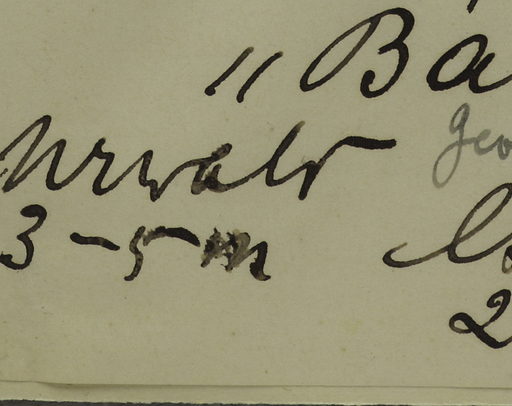 „ Bä
Urwald geo
3-5 m
2